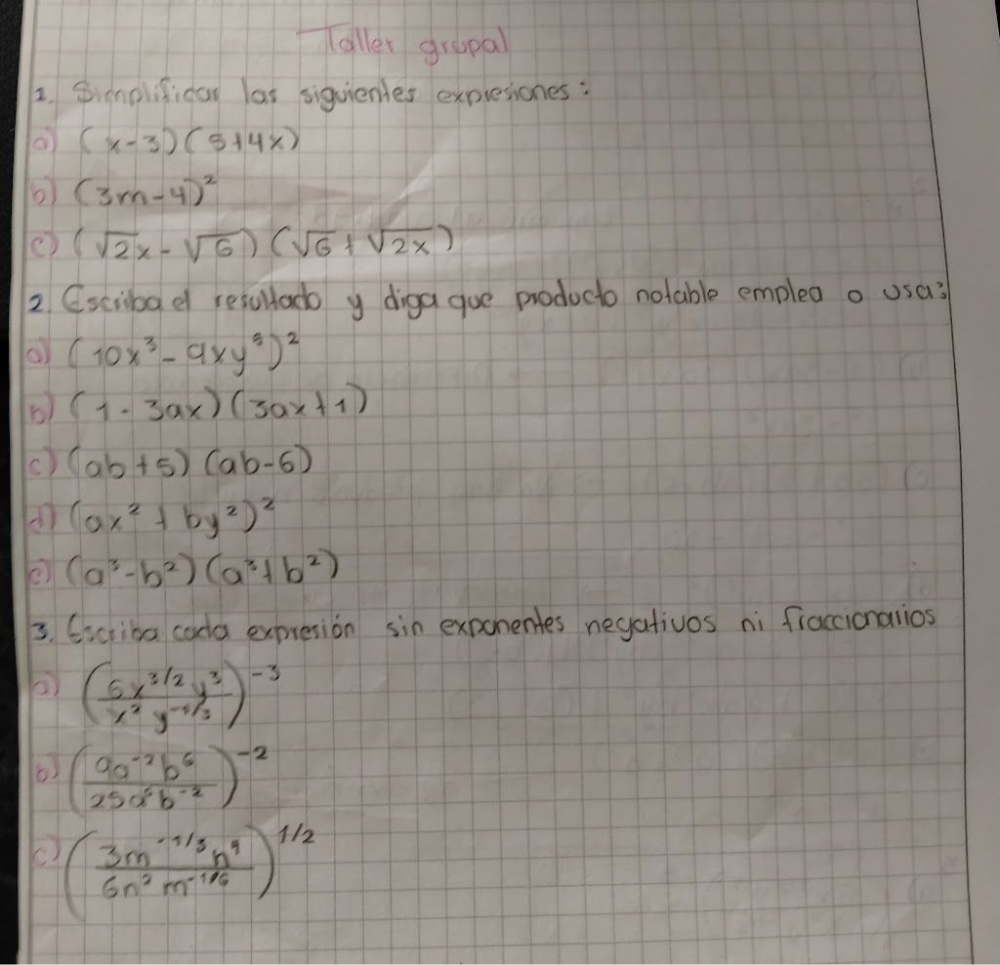 Taller grupal
1. Simplificar las siguientes expresiones:
a) (x-3)(5+4x)
b) (3m-4)²
c) (√2x - √6)(√6 + √2x)
2. Escriba el resultado y diga que producto notable emplea o usa:
a) (10x³ - 9xy⁵)²
b) (1 - 3ax)(3ax+1)
c) (ab+5)(ab-6)
d) (ax² + by²)²
e) (a³-b²)(a³+b²)
3. Escriba cada expresión sin exponentes negativos ni fraccionarios
a) (5x^3/2 y³ / x² y^-1/3)^-3
b) (9a^-2 b⁶ / 25a⁵b^-2)^-2
c) (3m^-1/3 n⁹ / 6n² m^-1/6)^1/2